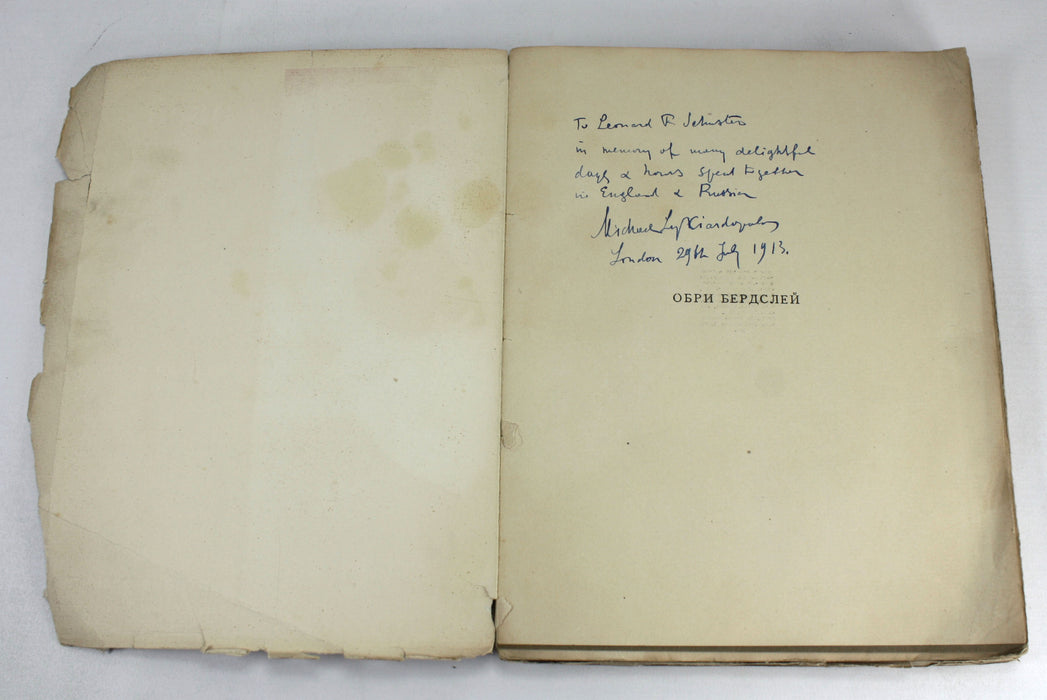 To Leonard F. Schuster
in memory of many delightful
days & hours spent together
in England & Russia
Michael Lykiardopulos
London 29th July 1913.
ОБРИ БЕРДСЛЕЙ